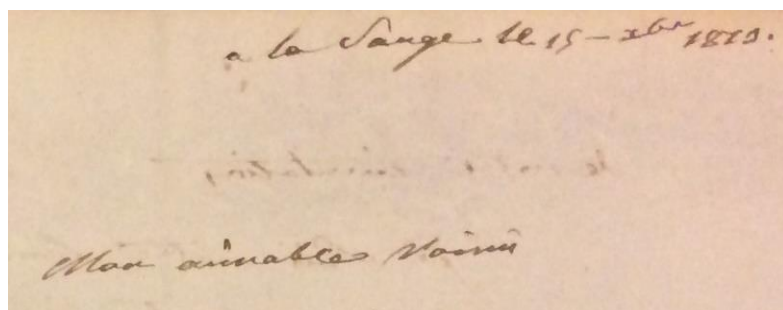 a la Sauge le 15 - xbr 1813.
Mon aimable Voisin